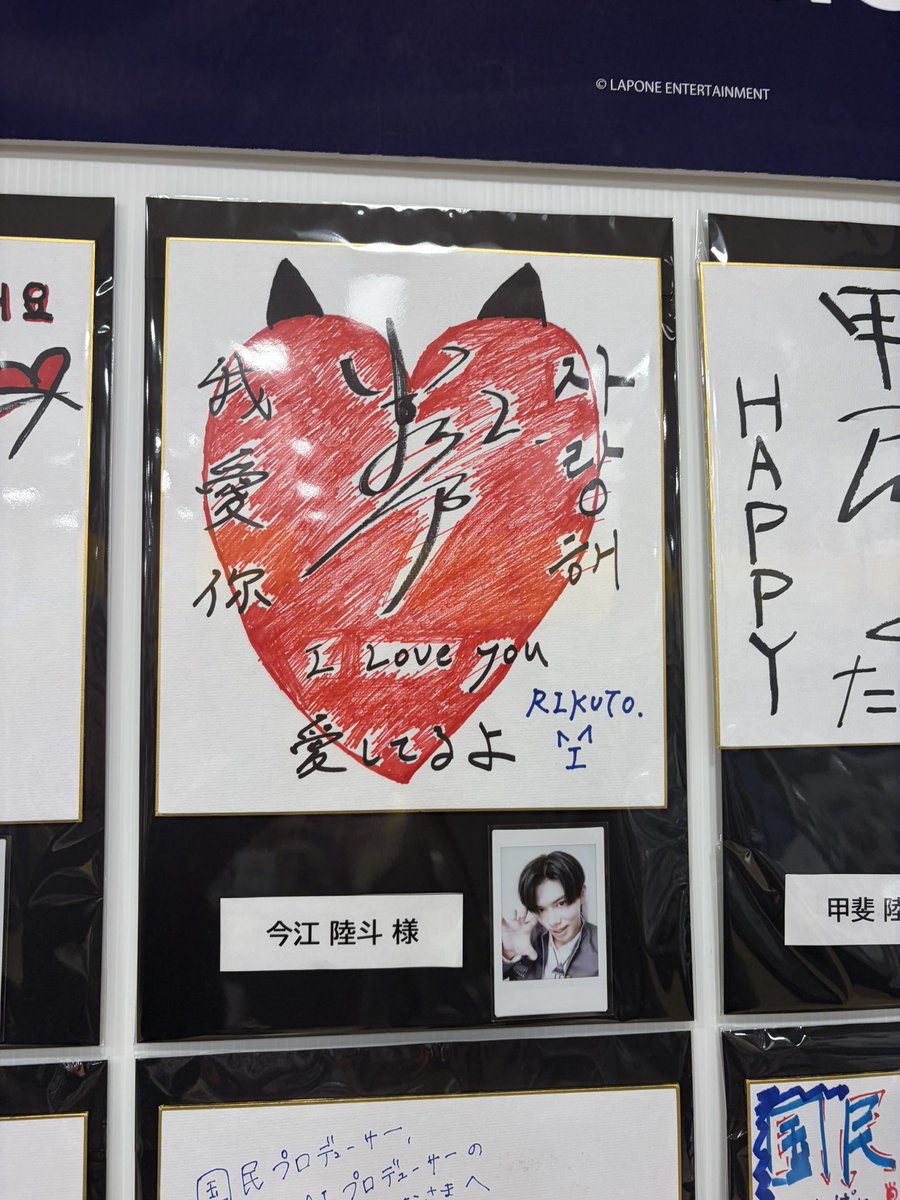 © LAPONE ENTERTAINMENT
我愛你
사랑해
I Love you
愛してるよ
RIKUTO.
今江 陸斗 様
HAPPY
甲
た
甲斐 陸
国民プロデューサー、
プロデューサーの
さまへ
国民